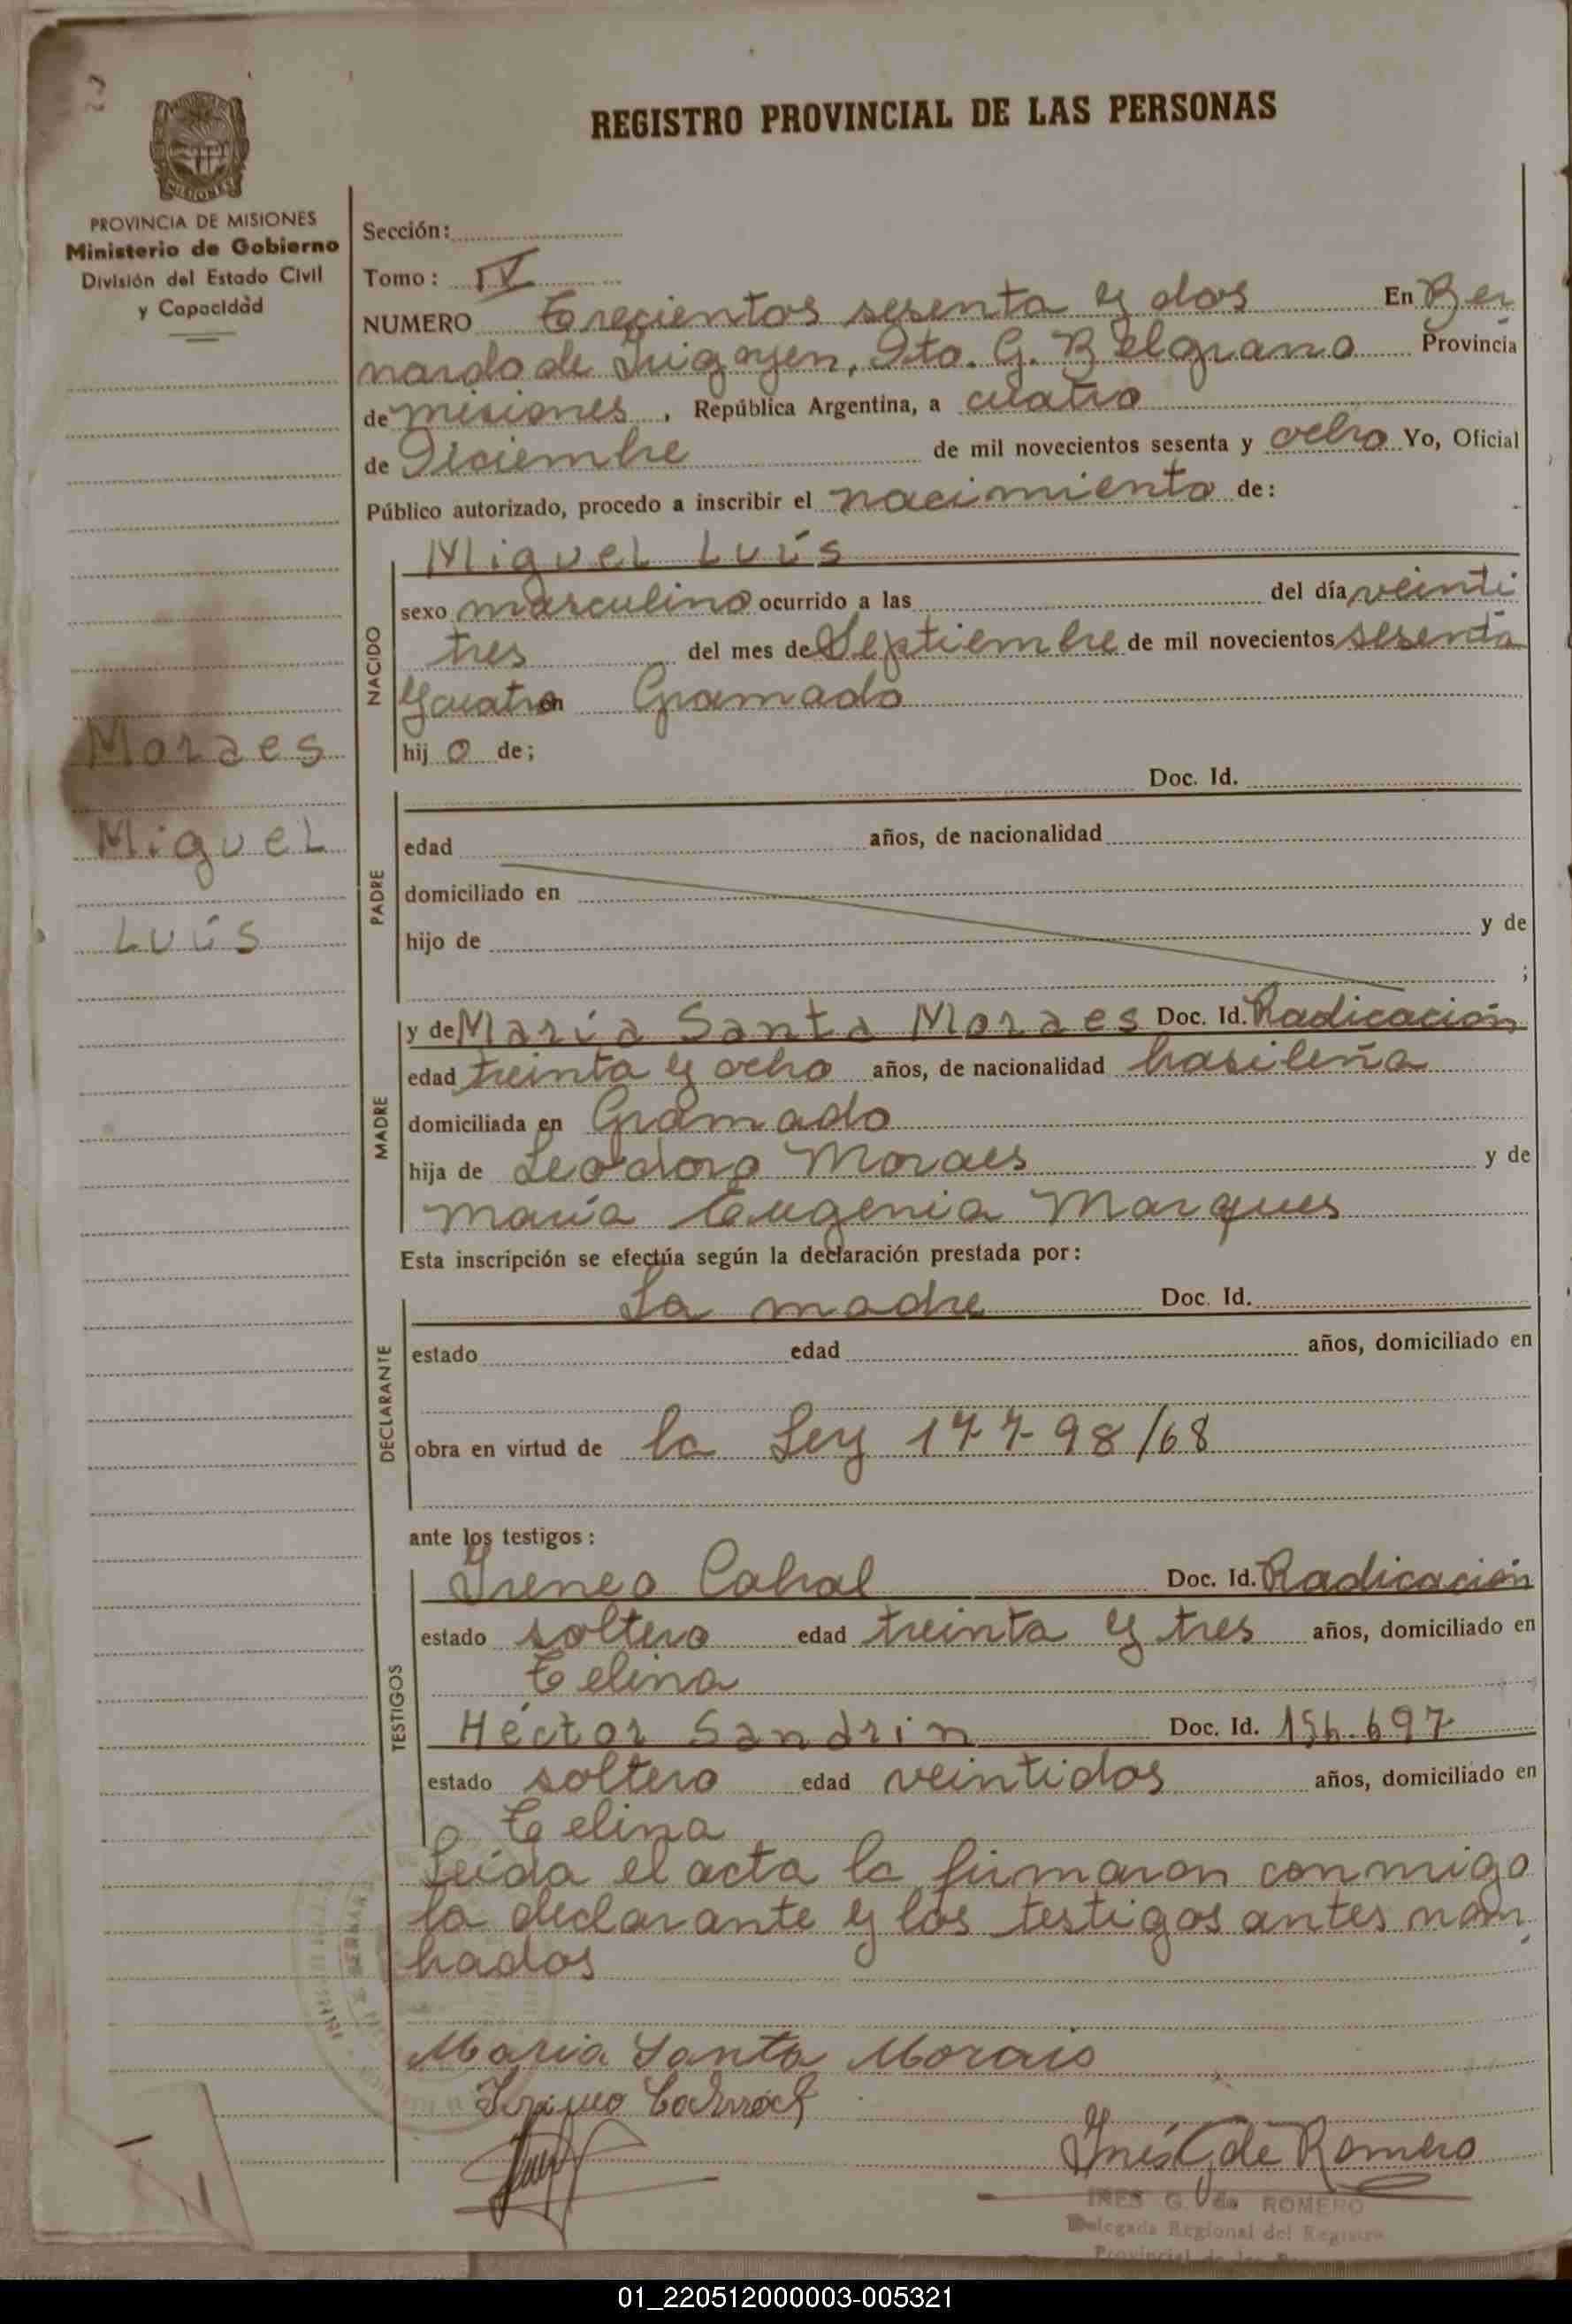 REGISTRO PROVINCIAL DE LAS PERSONAS
MISIONES
PROVINCIA DE MISIONES
Ministerio de Gobierno
División del Estado Civil
y Capacidad
Moraes
Miguel
Luís
Sección:
Tomo: IV
NUMERO Trecientos sesenta y dos En Ber
nardo de Irigoyen, Dto. G. Belgrano Provincia
de misiones, República Argentina, a cuatro
de Diciembre de mil novecientos sesenta y ocho Yo, Oficial
Público autorizado, procedo a inscribir el nacimiento de:
NACIDO
Miguel Luís
sexo masculino ocurrido a las del día veinti
tres del mes de Septiembre de mil novecientos sesenta
y cuatro en Gramado
hij o de;
PADRE
Doc. Id.
edad años, de nacionalidad
domiciliado en
hijo de y de
;
MADRE
y de María Santa Moraes Doc. Id. Radicación
edad treinta y ocho años, de nacionalidad brasileña
domiciliada en Gramado
hija de Leodoro Moraes y de
María Eugenia Marques
Esta inscripción se efectúa según la declaración prestada por:
DECLARANTE
La madre Doc. Id.
estado edad años, domiciliado en
obra en virtud de la Ley 17798/68
ante los testigos:
TESTIGOS
Ireneo Cabral Doc. Id. Radicación
estado soltero edad treinta y tres años, domiciliado en
Celina
Héctor Sandrin Doc. Id. 154.697
estado soltero edad veintidos años, domiciliado en
Celina
Leída el acta la firmaron conmigo
la declarante y los testigos antes nom
brados
Maria Santa Morais
Inés G de Romero
INES G. de ROMERO
Delegada Regional del Registro
Provincial de las
01_220512000003-005321